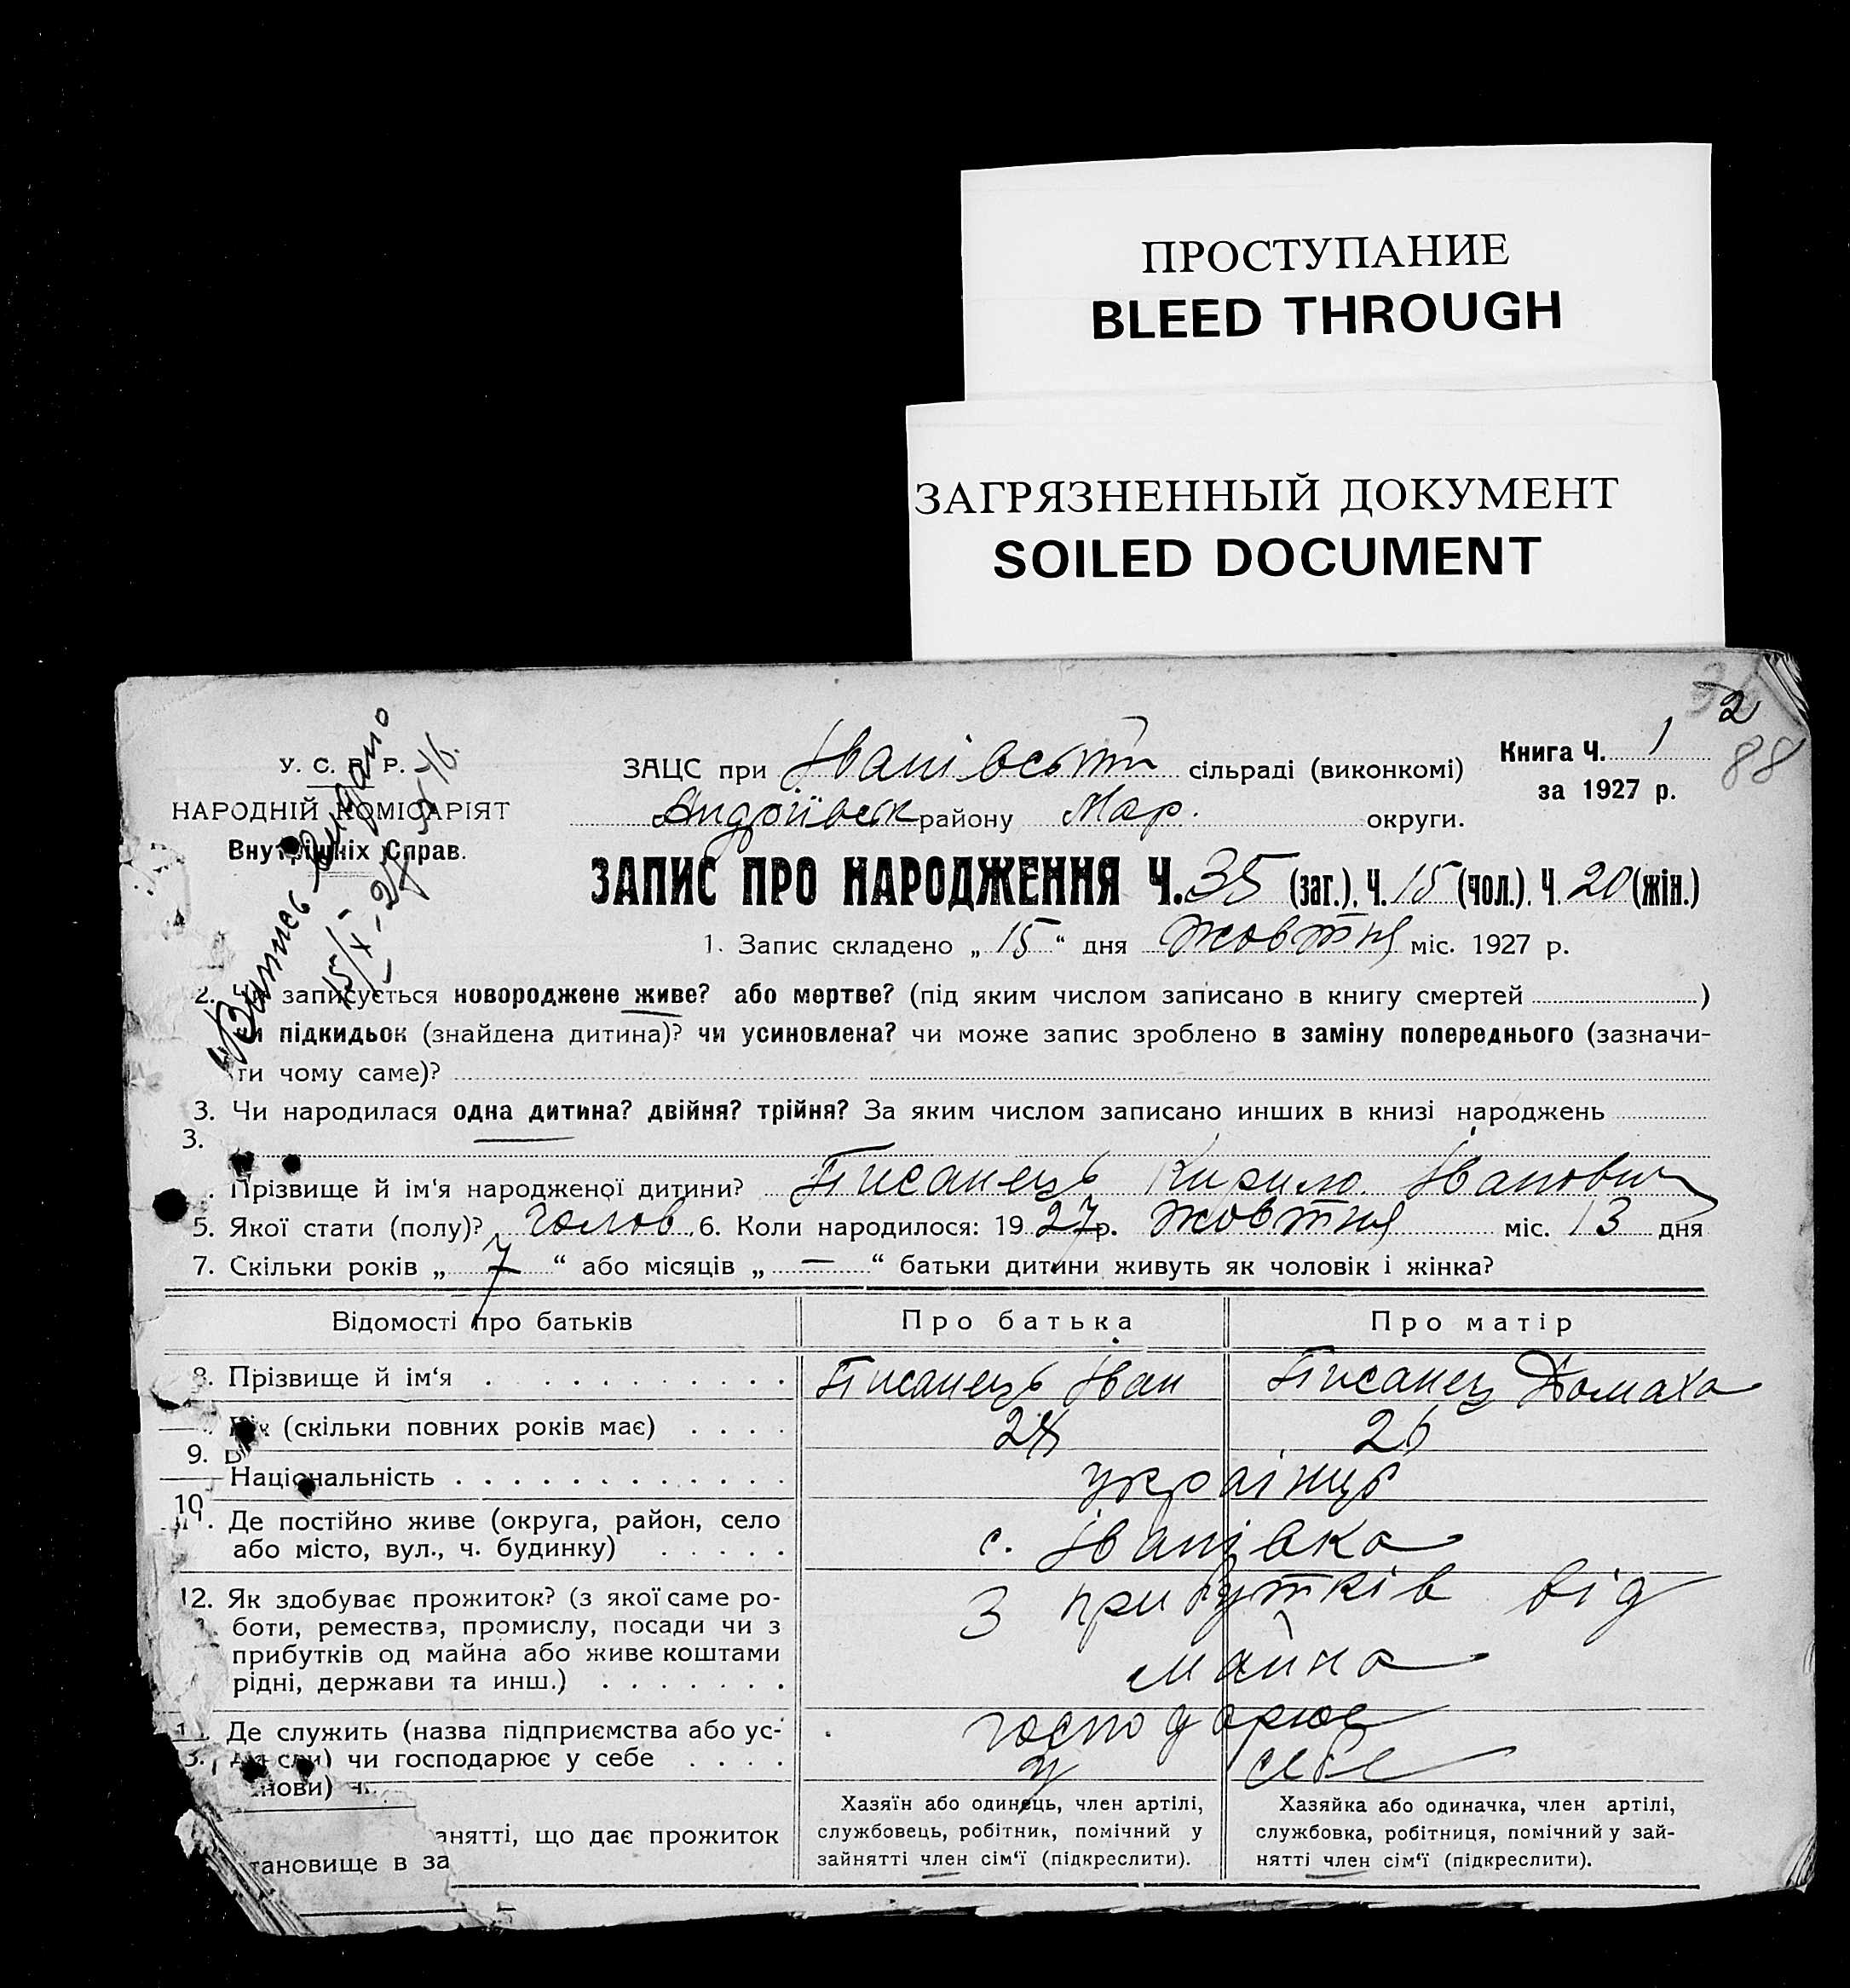 ПРОСТУПАНИЕ
BLEED THROUGH
ЗАГРЯЗНЕННЫЙ ДОКУМЕНТ
SOILED DOCUMENT
2
88
У. С. Р. Р.
НАРОДНІЙ КОМІСАРІЯТ
Внутрішніх Справ.
ЗАЦС при Іванівськи сільраді (виконкомі)
Книга Ч. 1
за 1927 р.
Андріївськ району Мар. округи.
ЗАПИС ПРО НАРОДЖЕННЯ Ч. 35 (заг.), Ч. 15 (чол.). Ч. 20 (жін.)
1. Запис складено „ 15 “ дня жовтня міс. 1927 р.
2. записується новороджене живе? або мертве? (під яким числом записано в книгу смертей )
підкидьок (знайдена дитина)? чи усиновлена? чи може запис зроблено в заміну попереднього (зазначи-
ти чому саме)?
3. Чи народилася одна дитина? двійня? трійня? За яким числом записано инших в книзі народжень
3.
Прізвище й ім'я народженої дитини? Писанець Кирило Іванович
5. Якої стати (полу)? чолов. 6. Коли народилося: 19 27 р. жовтня міс. 13 дня
7. Скільки років „ 7 “ або місяців „ — “ батьки дитини живуть як чоловік і жінка?
Відомості про батьків
Про батька
Про матір
8. Прізвище й ім'я
Писанець Іван
Писанец Домаха
Вік (скільки повних років має)
26
9. В
Національність
українці
10
11. Де постійно живе (округа, район, село
або місто, вул., ч. будинку)
с. Іванівка
12. Як здобуває прожиток? (з якої саме ро-
боти, ремества, промислу, посади чи з
прибутків од майна або живе коштами
рідні, держави та инш.)
З прибутків від
майна
Де служить (назва підприємства або ус-
чи господарює у себе
нови)
господарює
у себе
анятті, що дає прожиток
тановище в за
Хазяїн або одинець, член артілі,
службовець, робітник, помічний у
зайнятті член сім'ї (підкреслити).
Хазяйка або одиначка, член артілі,
службовка, робітниця, помічний у зай-
нятті член сім'ї (підкреслити).